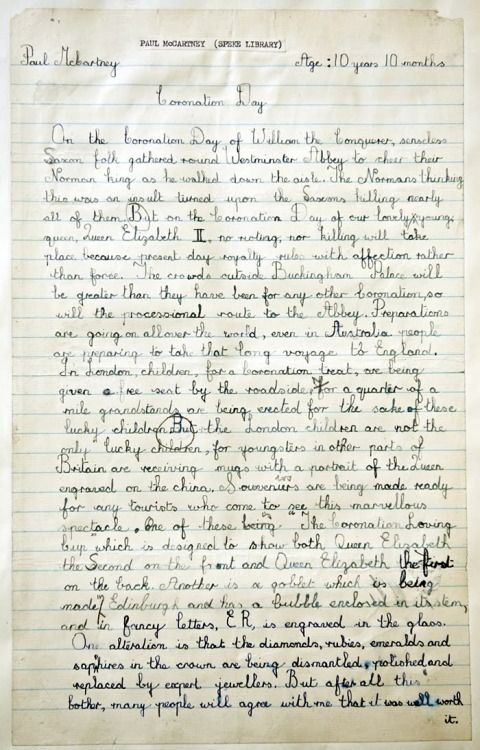 PAUL McCARTNEY (SPEKE LIBRARY)
Paul McCartney Age : 10 years 10 months
Coronation Day
On the Coronation Day of William the Conquerer, senseless
Saxon folk gathered round Westminster Abbey to cheer their
Norman king as he walked down the aisle. The Normans thinking
this was an insult turned upon the Saxons killing nearly
all of them. But on the Coronation Day of our lovely young
queen, Queen Elizabeth II, no rioting, nor killing will take
place because present day royalty rules with affection rather
than force. The crowds outside Buckingham Palace will
be greater than they have been for any other Coronation, so
will the processional route to the Abbey. Preparations
are going on all over the world, even in Australia people
are preparing to take that long voyage to England.
In London, children, for a Coronation treat, are being
given a free seat by the roadside. For a quarter of a
mile grandstands are being erected for the sake of these
lucky children. But the London children are not the
only lucky children, for youngsters in other parts of
Britain are receiving mugs with a portrait of the Queen
engraved on the china. Souveniers are being made ready
for any tourists who come to see this marvellous
spectacle, one of these being "The Coronation Loving
Cup" which is designed to show both Queen Elizabeth
the Second on the front and Queen Elizabeth the first
on the back. Another is a goblet which is being
made Edinburgh and has a bubble enclosed in its stem,
and in fancy letters, E.R, is engraved in the glass.
One alteration is that the diamonds, rubies, emeralds and
saphires in the crown are being dismantled, polished, and
replaced by expert jewellers. But after all this
bother, many people will agree with me that it was well worth
it.